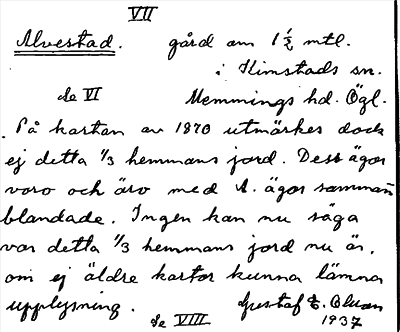 VII
Alvestad. gård om 1 1/2 mtl.
i Kimstads sn.
Se VI Memmings hd. Ögl.
På kartan av 1870 utmärkes dock
ej detta 1/3 hemmans jord. Dess ägor
voro och äro med A. ägor samman
blandade. Ingen kan nu säga
var detta 1/3 hemmans jord nu är,
om ej äldre kartor kunna lämna
upplysning. Gustaf E.
Se VIII 1937